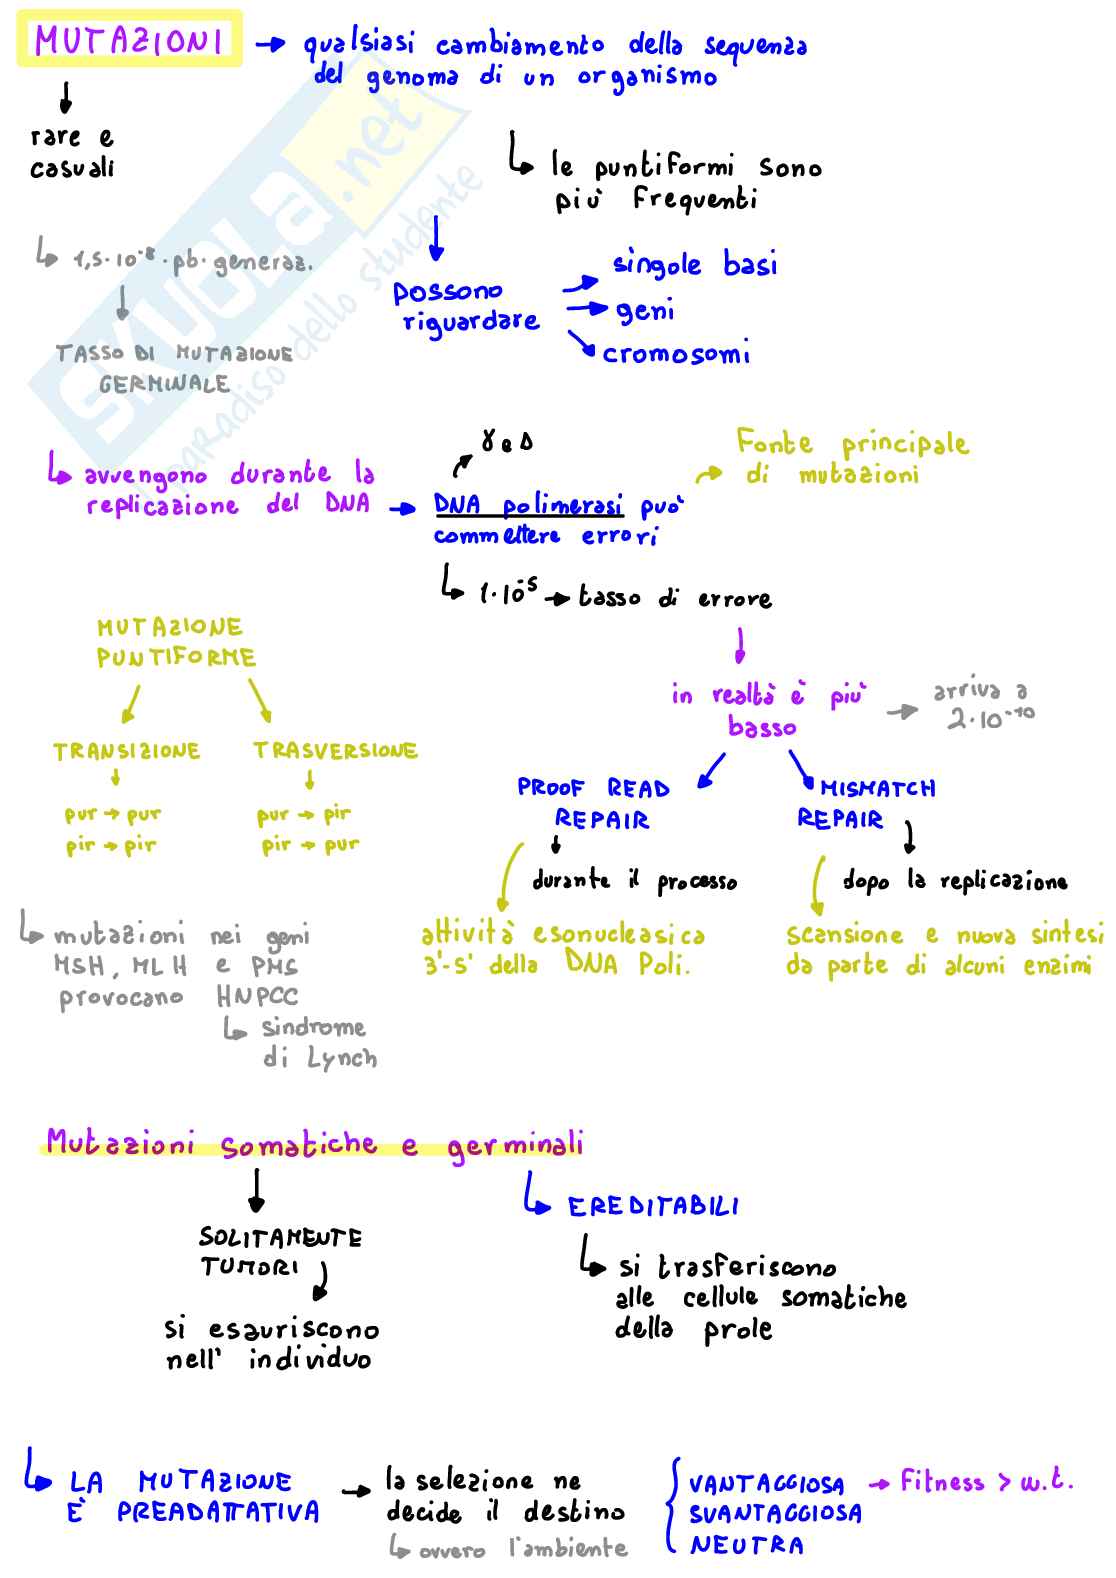 MUTAZIONI → qualsiasi cambiamento della sequenza
del genoma di un organismo
rare e
casuali
le puntiformi sono
più frequenti
1,5·10⁻⁸·pb·generaz.
TASSO DI MUTAZIONE
GERMINALE
possono
riguardare
singole basi
geni
cromosomi
SKUOLA.net
paradiso dello studente
avvengono durante la
replicazione del DNA →
γ e δ
DNA polimerasi può
commettere errori
Fonte principale
di mutazioni
1·10⁻⁵ → tasso di errore
in realtà è più
basso
arriva a
2·10⁻¹⁰
MUTAZIONE
PUNTIFORME
TRANSIZIONE
pur → pur
pir → pir
TRASVERSIONE
pur → pir
pir → pur
PROOF READ
REPAIR
durante il processo
attività esonucleasica
3'-5' della DNA Poli.
MISMATCH
REPAIR
dopo la replicazione
scansione e nuova sintesi
da parte di alcuni enzimi
mutazioni nei geni
MSH, MLH e PMS
provocano HNPCC
sindrome
di Lynch
Mutazioni somatiche e germinali
SOLITAMENTE
TUMORI
si esauriscono
nell' individuo
EREDITABILI
si trasferiscono
alle cellule somatiche
della prole
LA MUTAZIONE
È PREADATTATIVA
→ la selezione ne
decide il destino
ovvero l'ambiente
VANTAGGIOSA → Fitness > w.t.
SVANTAGGIOSA
NEUTRA